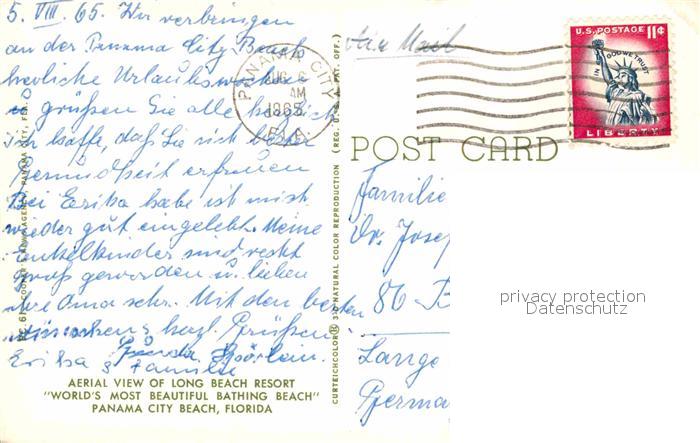 5. VIII. 65. Wir verbringen
an der Panama City Beach
herrliche Urlaubswochen
u. grüßen Sie alle herzlich
Ich hoffe, daß Sie sich bester
Gesundheit erfreuen
Bei Erika habe ich mich
wieder gut eingelebt. Meine
Enkelkinder sind recht
groß geworden u. lieben
ihre Oma sehr. Mit den besten
Wünschen & herzl. Grüßen
Erika & Familie
AERIAL VIEW OF LONG BEACH RESORT
"WORLD'S MOST BEAUTIFUL BATHING BEACH"
PANAMA CITY BEACH, FLORIDA
PANAMA CITY
AUG 6
AM
1965
FLA.
CURTEICHCOLOR® 3-D NATURAL COLOR REPRODUCTION (REG. U.S.A. PAT. OFF.)
Air Mail
U.S. POSTAGE 11¢
IN GOD WE TRUST
LIBERTY
POST CARD
Familie
Dr. Josef
86 B
Lange
Germa
privacy protection
Datenschutz